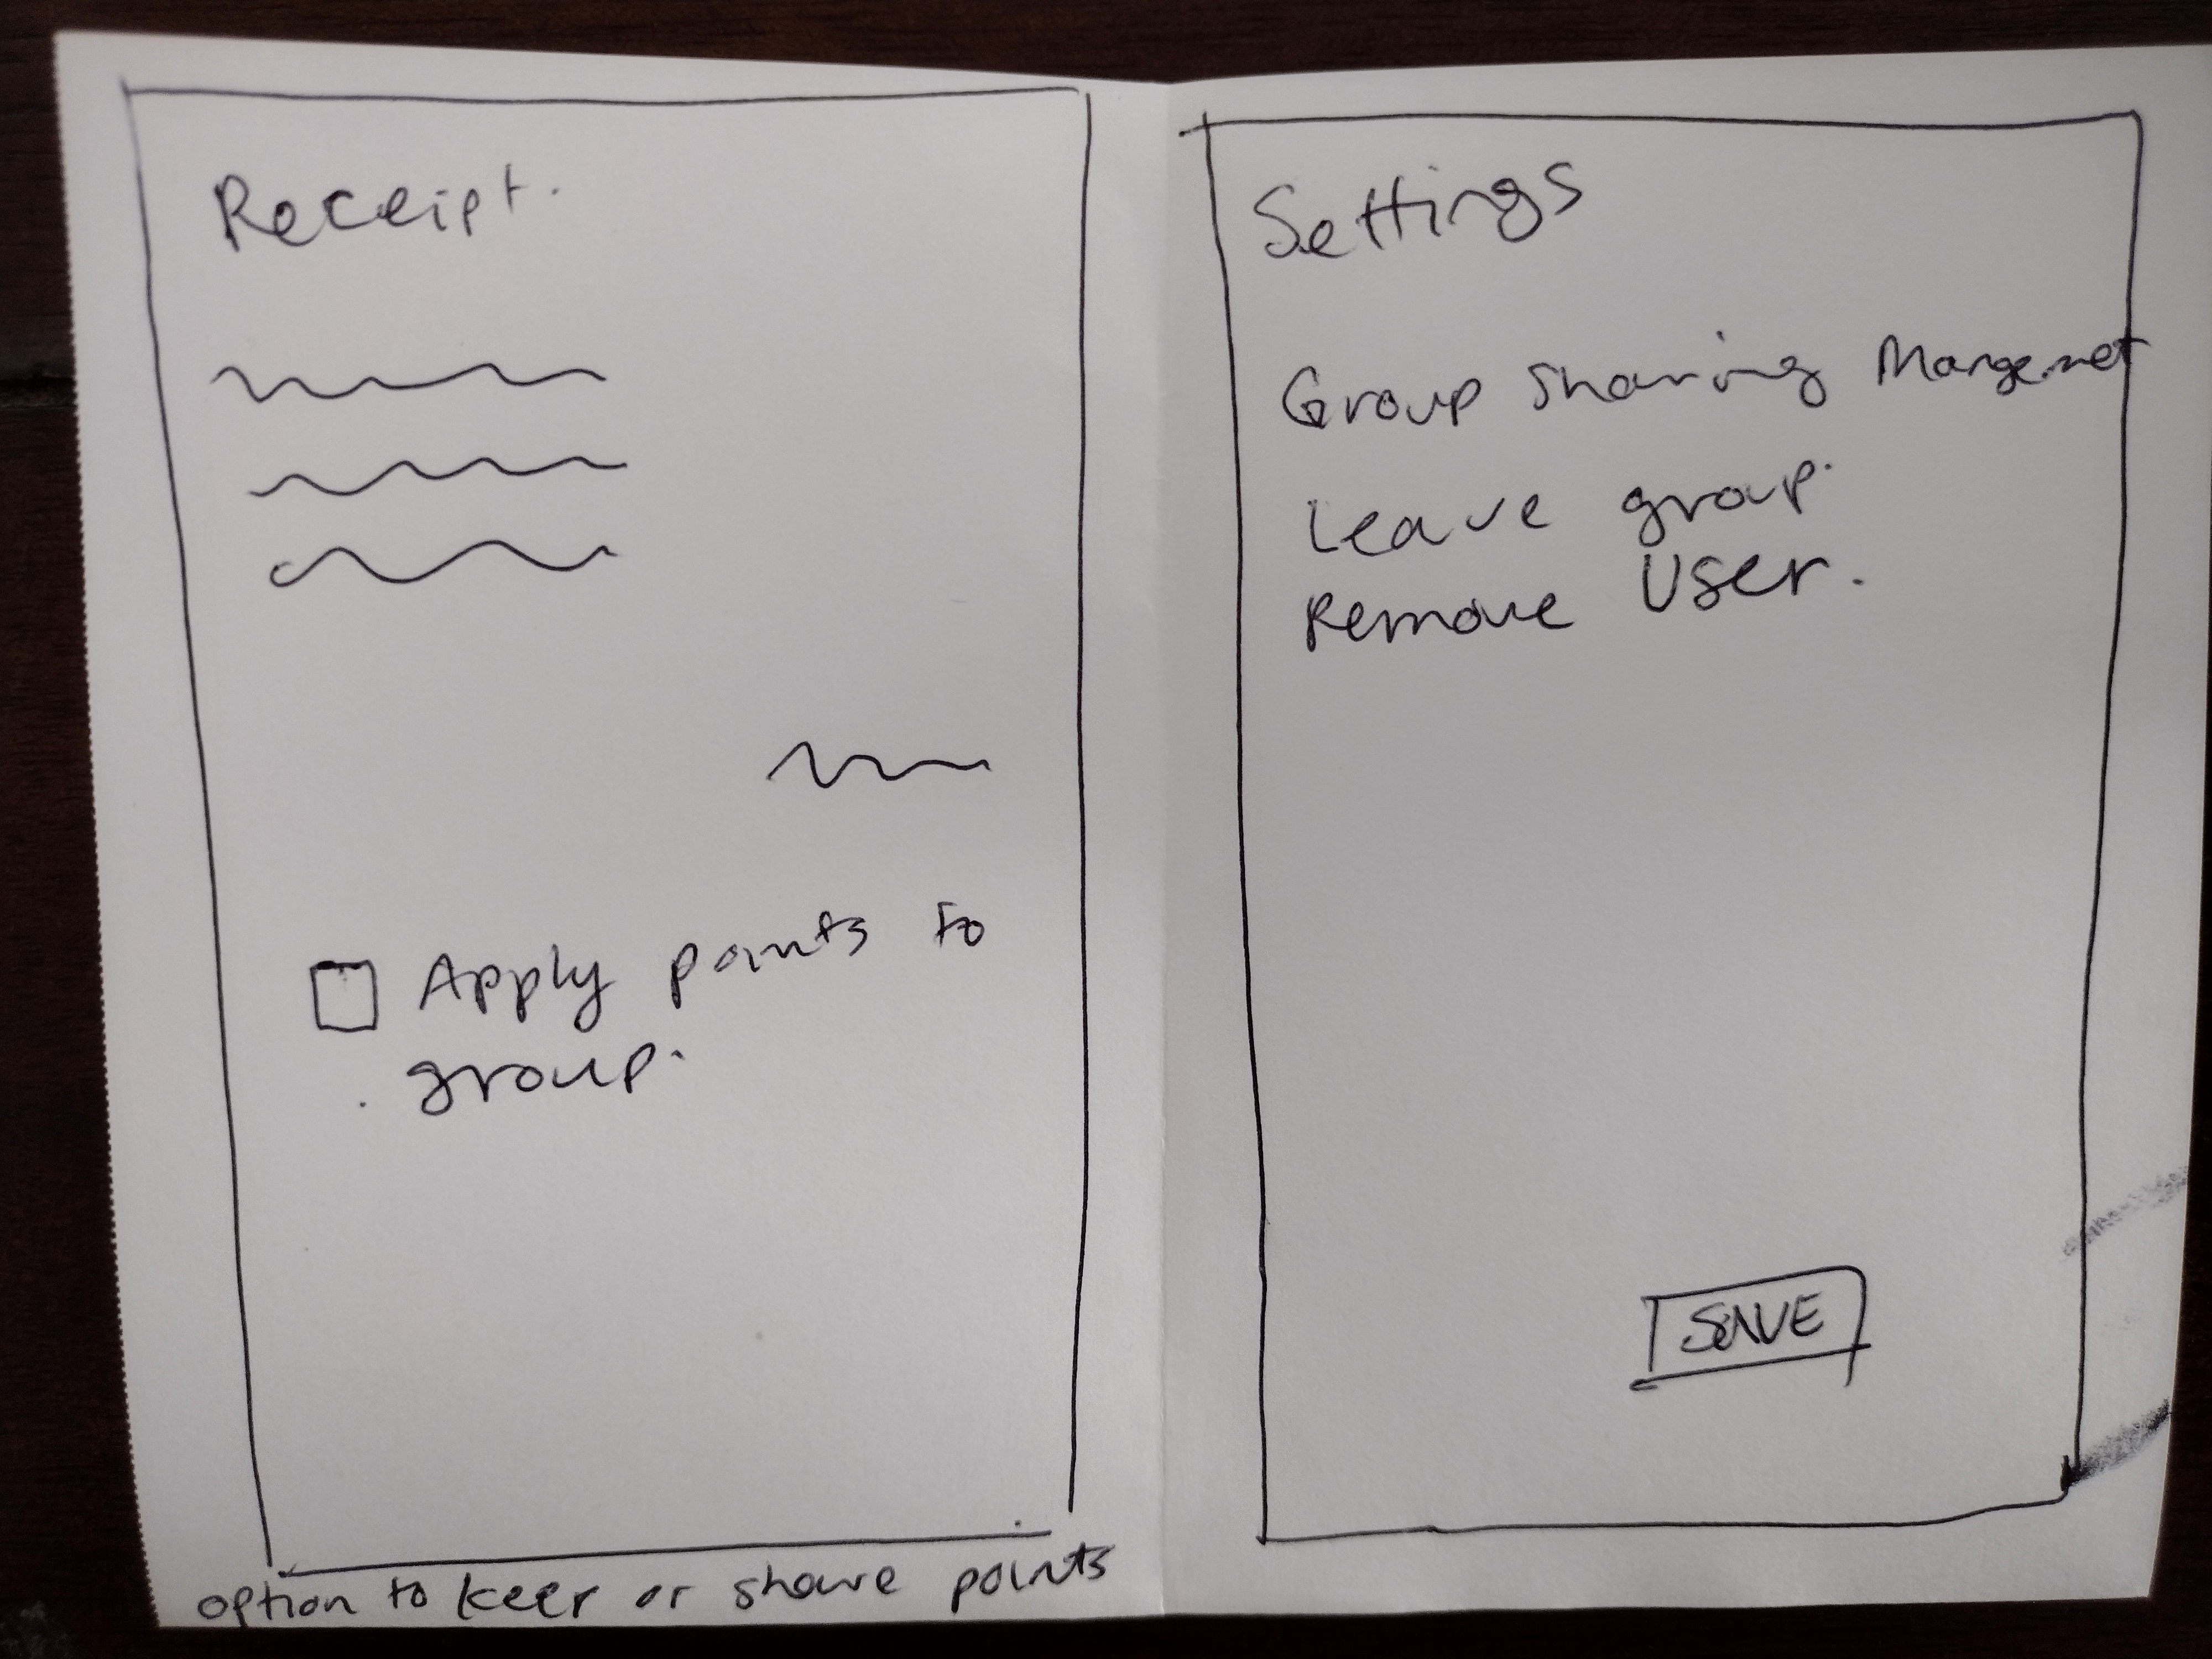 Receipt.
Apply points to
group.
option to keep or share points
Settings
Group Sharing Mangemet
Leave group.
Remove User.
SAVE